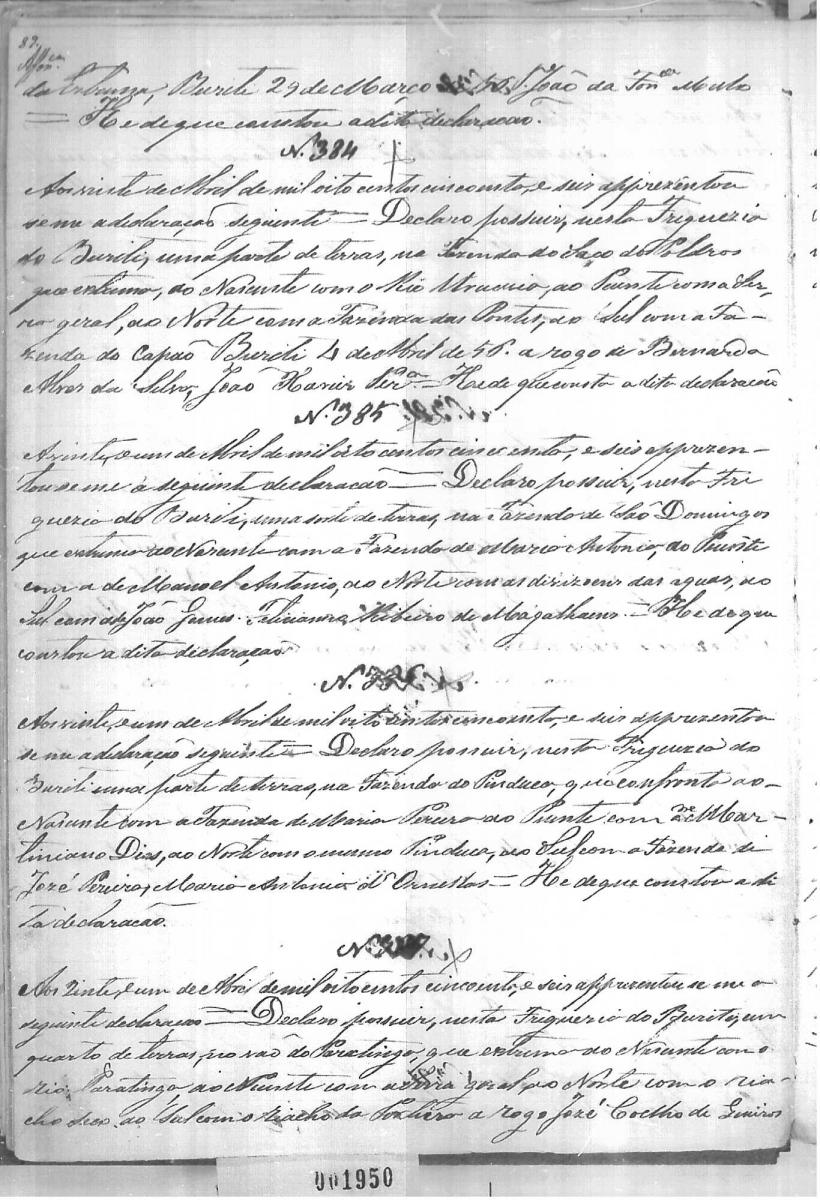 89.
da Extrema, Buriti 29 de Março de 56. João da Fonca Mello
= He de que constou a dita declaração.
N. 384
Aos vinte de Abril de mil oito centos cincoenta, e seis apprezentou
se me a declaração seguinte = Declaro possuir, nesta Friguezia
do Buriti, uma parte de terras, na Fazenda do Saco do Poldros
que extrema, ao Nascente com o Rio Urucuia, ao Puente com a Ser-
ra geral, ao Norte com a Fazenda das Pontes, ao Sul com a Fa-
zenda do Capão Buriti 4 de Abril de 56. a rogo de Bernarda
Alves da Silva, João Xavier Pera. = He de que consta a dita declaração
N. 385
A vinte, e um de Abril de mil oito centos cincoenta, e seis apprezen-
tou se me a seguinte declaração = Declaro possuir, nesta Fri
guezia do Buriti, uma sorte de terras, na Fazenda de São Domingos
que extrema ao Nascente com a Fazenda de Maria Antonia, ao Puente
com a de Manoel Antonio, ao Norte com as das aguas, ao
Sul com de João Gomes. Feliciana Ribeiro de Magalhaens. = He de que
constou a dita declaração
N.
Aos vinte, e um de Abril de mil oito centos cincoenta, e seis apprezentou
se me a declaração seguinte = Declaro possuir, nesta Friguezia do
Buriti uma parte de terras, na Fazenda do Pinduca, que confronta ao
Nascente com a Fazenda de Maria Pereira ao Puente com a me Mar-
tiniano Dias, ao Norte com o mesmo Pinduca, ao Sul com a Fazenda di
José Pereira, Maria Antonia d' Ornellas = He de que constou a di
ta declaração.
N.
Aos vinte, e um de Abril de mil oito centos cincoenta, e seis apprezentou se me a
seguinte declaração = Declaro possuir, nesta Friguezia do Buriti, um
quarto de terras, no vão do Paratinga, que extrema ao Nascente com o
rio Paratinga ao Puente com a serra geral, ao Norte com o ria-
cho seco ao Sul com o riacho da a rogo José Coelho de
001950